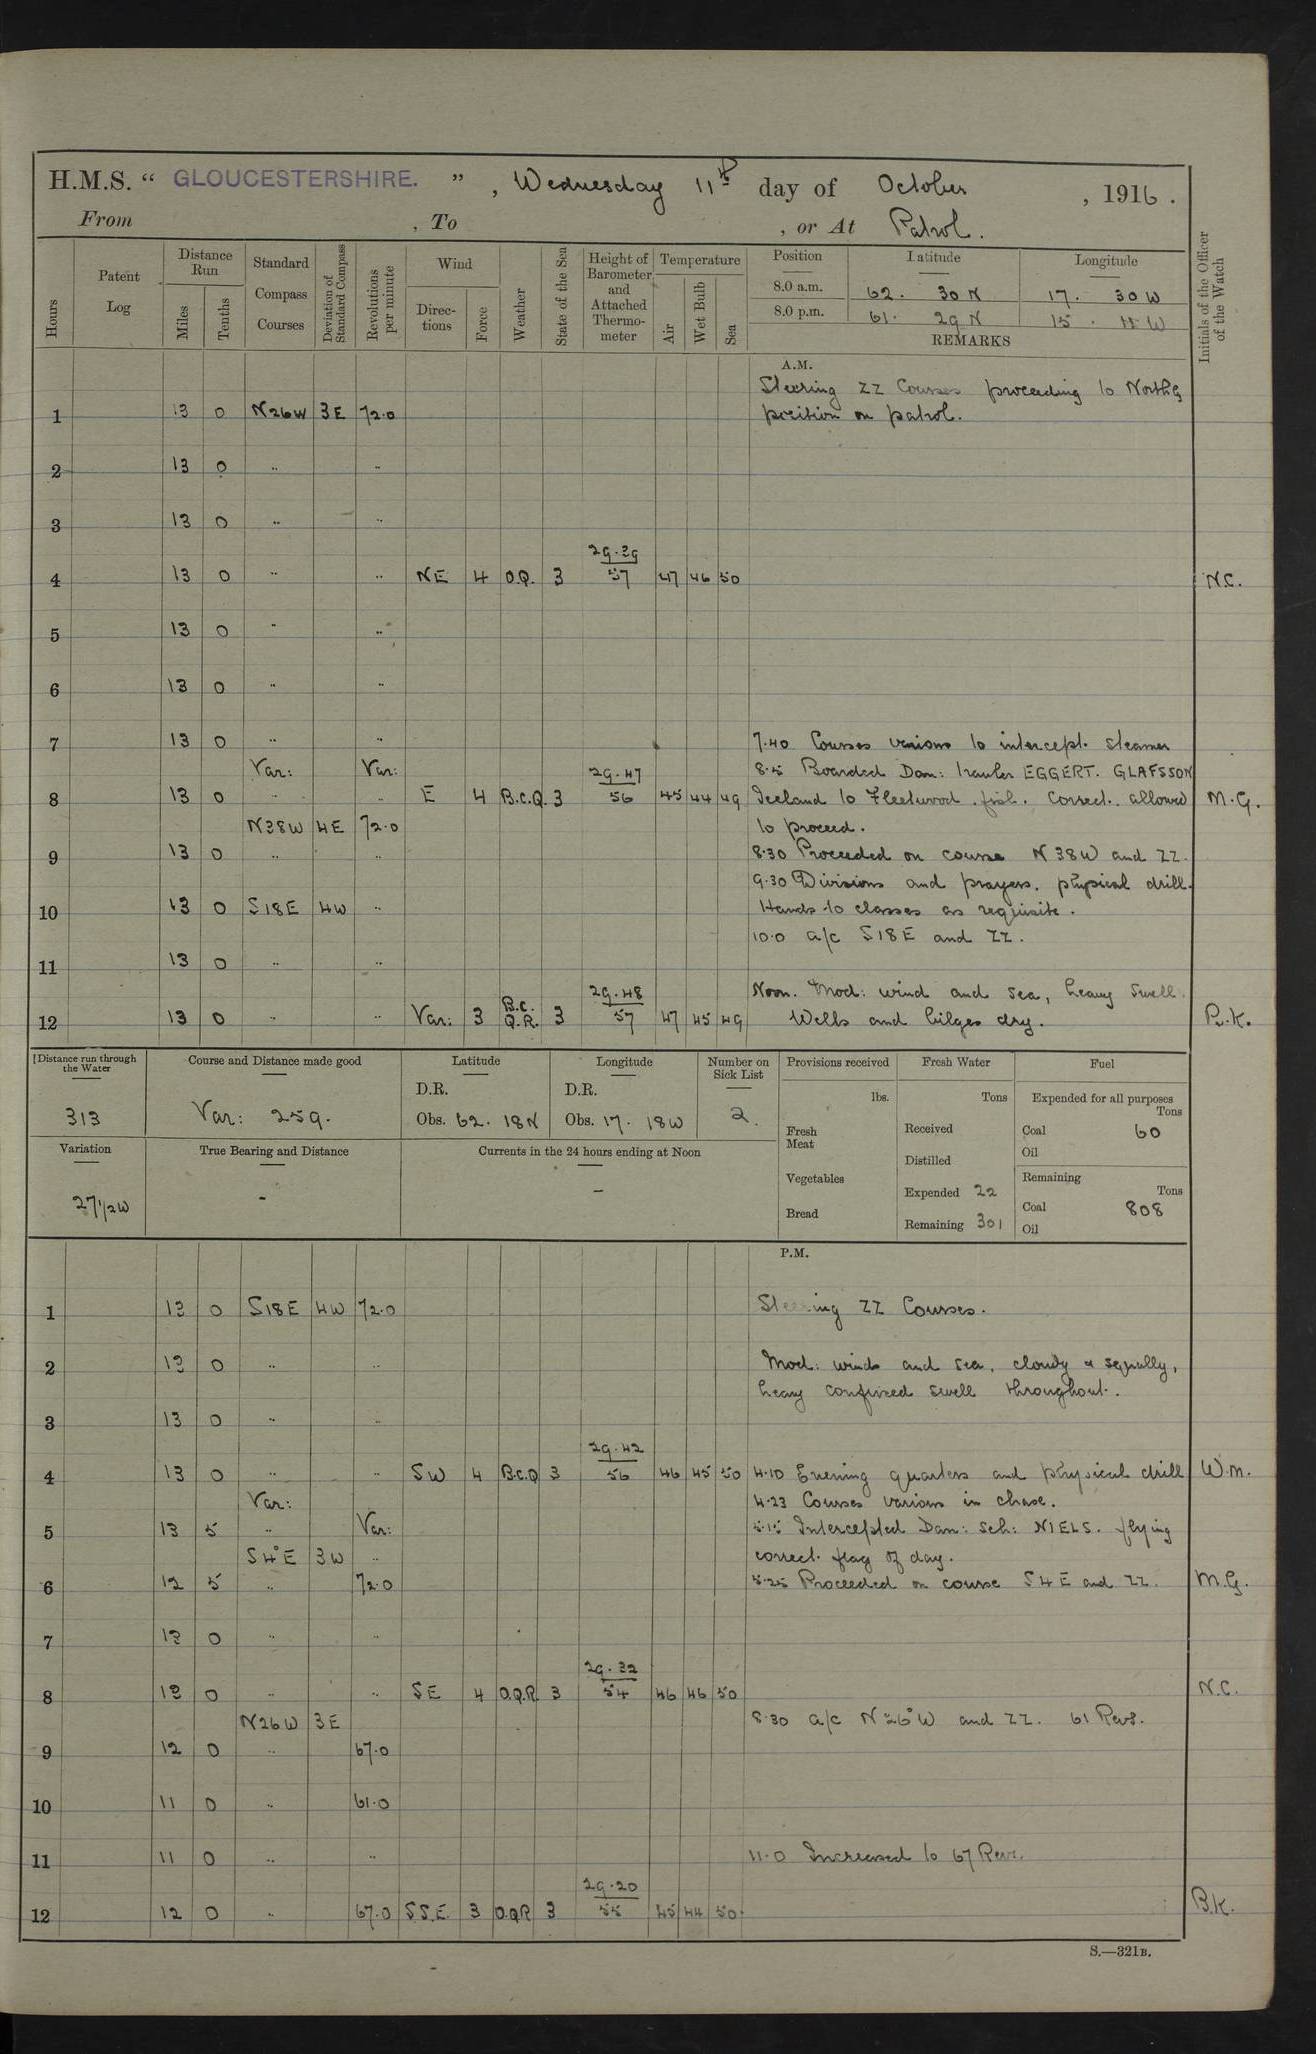 H.M.S. “ GLOUCESTERSHIRE. ” , Wednesday 11th day of October , 1916 .
From , To , or At Patrol.
Hours
Patent Log
Distance Run
Miles
Tenths
Standard Compass Courses
Deviation of Standard Compass
Revolutions per minute
Wind
Direc-tions
Force
Weather
State of the Sea
Height of Barometer and Attached Thermo-meter
Temperature
Air
Wet Bulb
Sea
Position Latitude Longitude
8.0 a.m. 62. 30 N 17. 30 W
8.0 p.m. 61. 29 N 15. W
REMARKS
Initials of the Officer of the Watch
A.M.
Steering ZZ Courses proceeding to North'g
1 13 0 N26W 3E 72.0 position on patrol.
2 13 0 " "
3 13 0 " "
29.39
4 13 0 " " NE 4 O.Q. 3 57 47 46 50 N.C.
5 13 0 " "
6 13 0 " "
7 13 0 " " 7.40 Courses various to intercept steamer
Var: Var: 29.47 8.5 Boarded Dan: trawler EGGERT. GLAFSSON
8 13 0 " " E 4 B.C.Q. 3 56 45 44 49 Iceland to Fleetwood. fish. Correct. allowed M.G.
N38W 4E 72.0 to proceed.
9 13 0 " " 8.30 Proceeded on course N 38W and ZZ.
9.30 Divisions and prayers. physical drill.
10 13 0 S18E 4W " Hands to classes as requisite.
10.0 a/c S18E and ZZ.
11 13 0 " "
29.48 Noon. Mod: wind and sea, heavy swell.
12 13 0 " " Var: 3 B.C.Q.R. 3 57 47 45 49 Wells and bilges dry. R.K.
Distance run through the Water
313
Course and Distance made good
Var: 259.
Latitude
D.R.
Obs. 62. 18N
Longitude
D.R.
Obs. 17. 18W
Number on Sick List
2.
Provisions received
lbs.
Fresh Meat
Vegetables
Bread
Fresh Water
Tons
Received
Distilled
Expended 22
Remaining 301
Fuel
Expended for all purposes
Tons
Coal 60
Oil
Remaining
Tons
Coal 808
Oil
Variation
27 1/2 W
True Bearing and Distance
-
Currents in the 24 hours ending at Noon
-
P.M.
1 13 0 S18E 4W 72.0 Steering ZZ Courses.
2 13 0 " " Mod: winds and sea, cloudy & squally,
heavy confused swell throughout.
3 13 0 " "
29.42
4 13 0 " " SW 4 B.C.Q 3 56 46 45 50 4.10 Evening quarters and physical drill W.M.
Var: 4.23 Courses various in chase.
5 13 5 " Var: 5.15 Intercepted Dan: Sch: NIELS. flying
S4°E 3W " correct. flag of day.
6 12 5 " 72.0 5.25 Proceeded on course S4E and ZZ. M.G.
7 13 0 " "
29.32
8 13 0 " " SE 4 O.Q.R. 3 54 46 46 50 N.C.
N26W 3E 8.30 a/c N26°W and ZZ. 61 Revs.
9 12 0 " 67.0
10 11 0 " 61.0
11 11 0 " " 11.0 Increased to 67 Revs.
29.20
12 12 0 " 67.0 SSE 3 O.Q.R 3 55 45 44 50 B.K.
S.—321B.